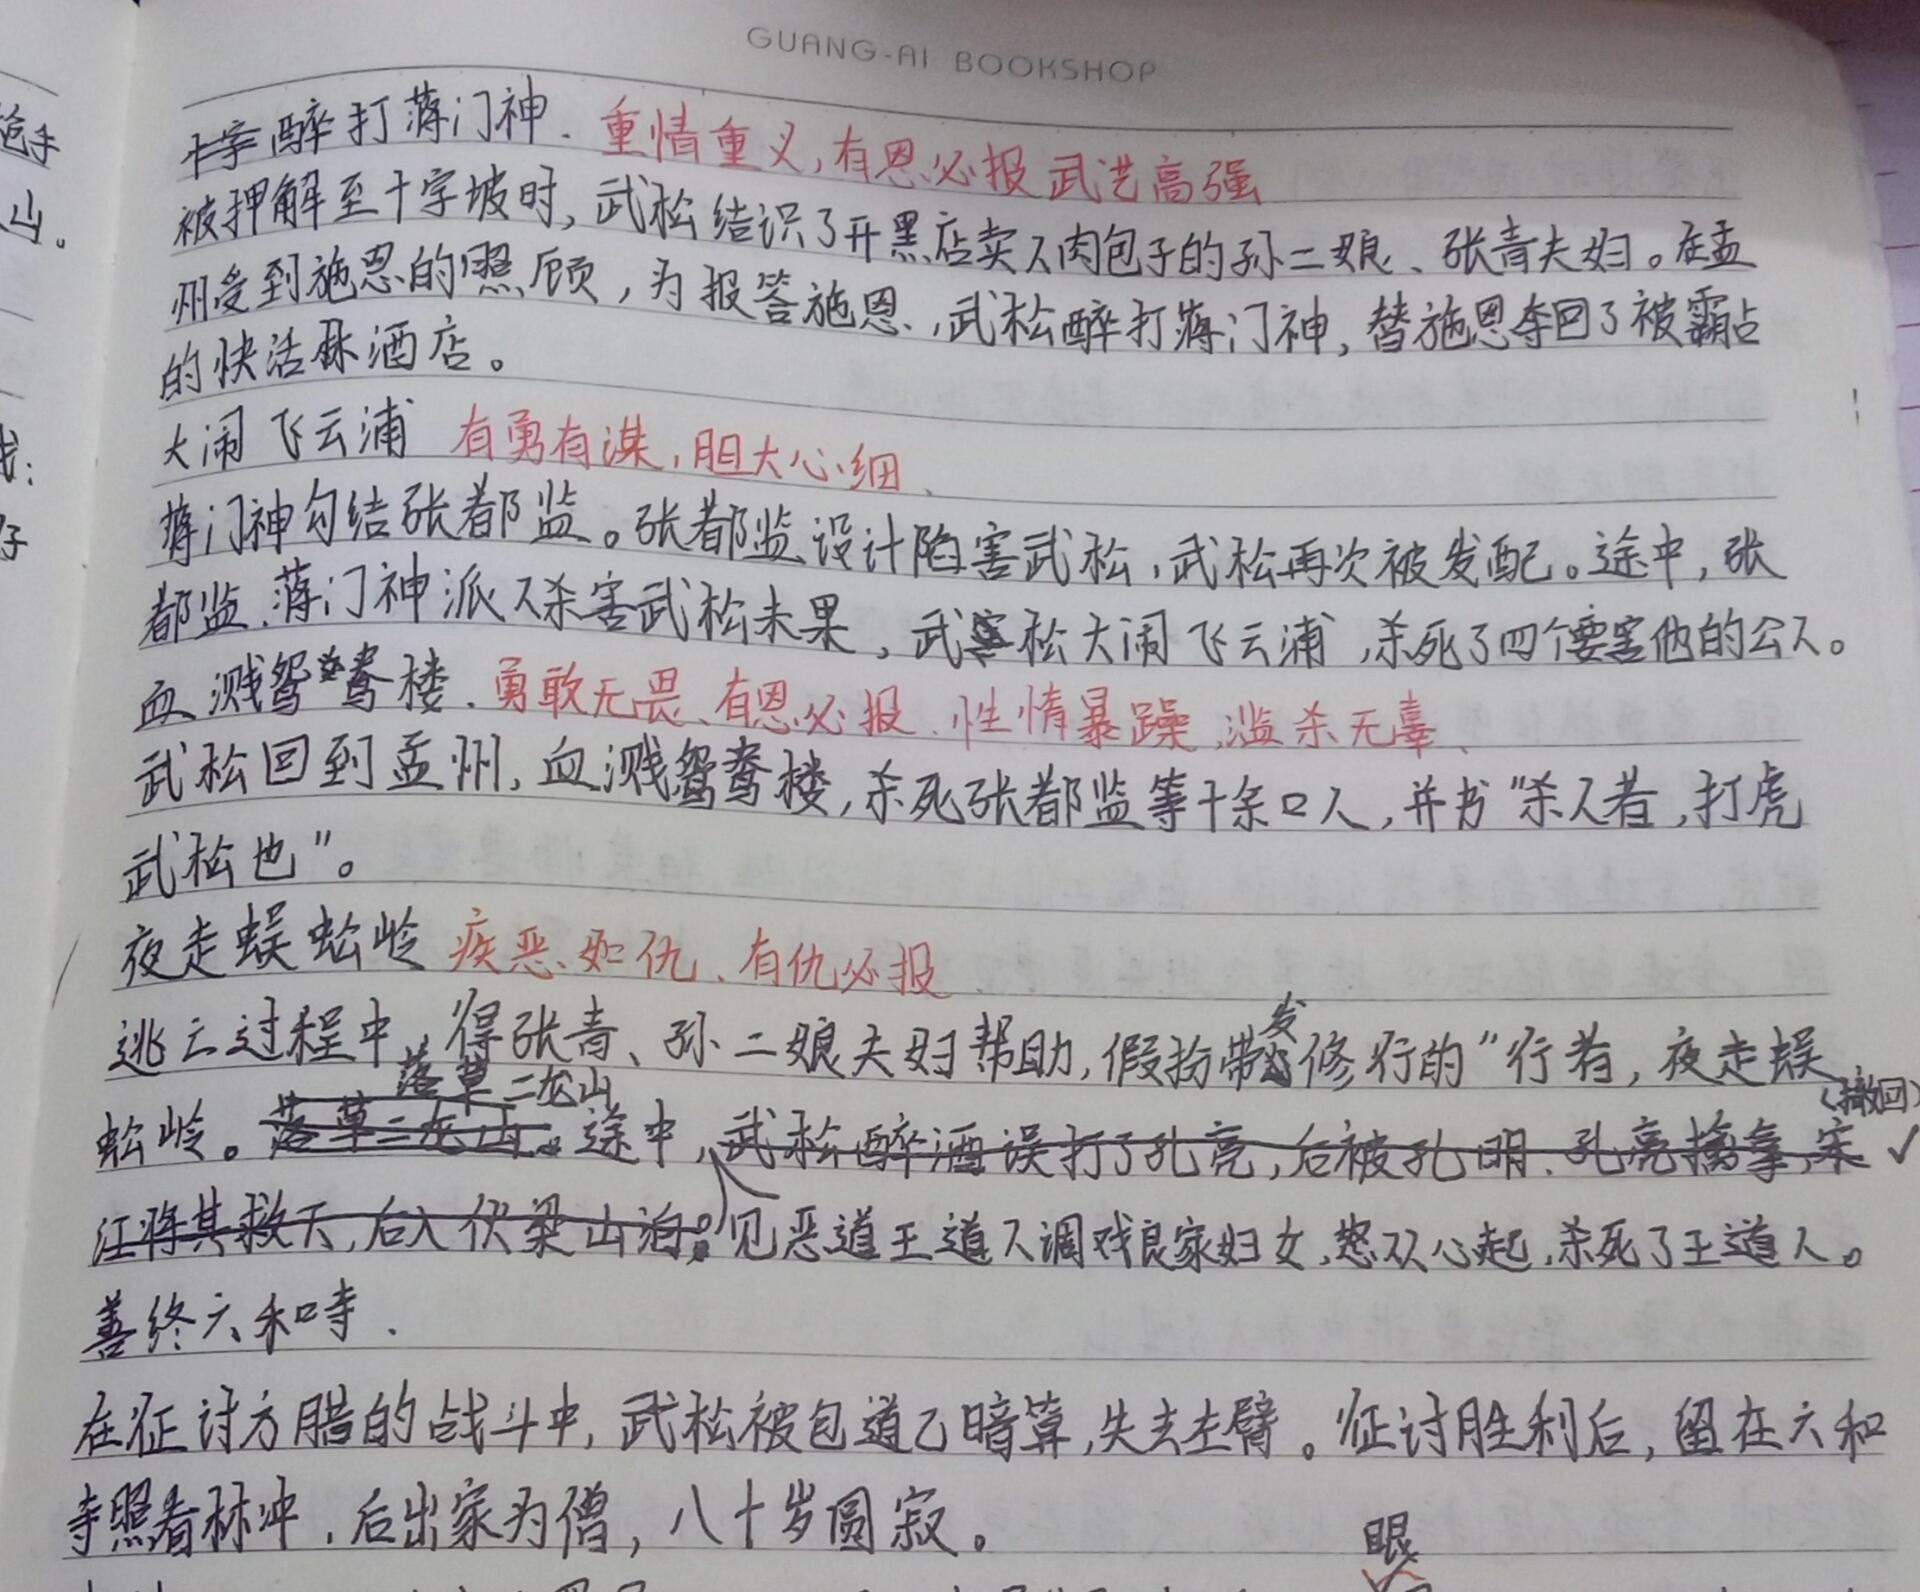 GUANG-AI BOOKSHOP
醉打蒋门神. 重情重义,有恩必报 武艺高强
被押解至十字坡时,武松结识了开黑店卖人肉包子的孙二娘、张青夫妇。在孟
州受到施恩的照顾,为报答施恩,武松醉打蒋门神,替施恩夺回了被霸占
的快活林酒店。
大闹飞云浦 有勇有谋,胆大心细、
蒋门神勾结张都监。张都监设计陷害武松,武松再次被发配。途中,张
都监、蒋门神派人杀害武松未果,武松大闹飞云浦,杀死了四个要害他的公人。
血溅鸳鸯楼. 勇敢无畏、有恩必报、性情暴躁、滥杀无辜、
武松回到孟州,血溅鸳鸯楼,杀死张都监等十余口人,并书“杀人者,打虎
武松也”。
夜走蜈蚣岭 疾恶如仇、有仇必报
逃亡过程中,得张青、孙二娘夫妇帮助,假扮带发修行的“行者,夜走蜈
落草二龙山 (撤回)
蚣岭。落草二龙山。途中,武松醉酒误打了孔亮,后被孔明、孔亮擒拿,宋 ✓
江将其救下,后入伙梁山泊。见恶道王道人调戏良家妇女,怒从心起,杀死了王道人。
善终六和寺.
在征讨方腊的战斗中,武松被包道乙暗算,失去左臂。征讨胜利后,留在六和
寺照看林冲,后出家为僧,八十岁圆寂。
眼
枪手
山。